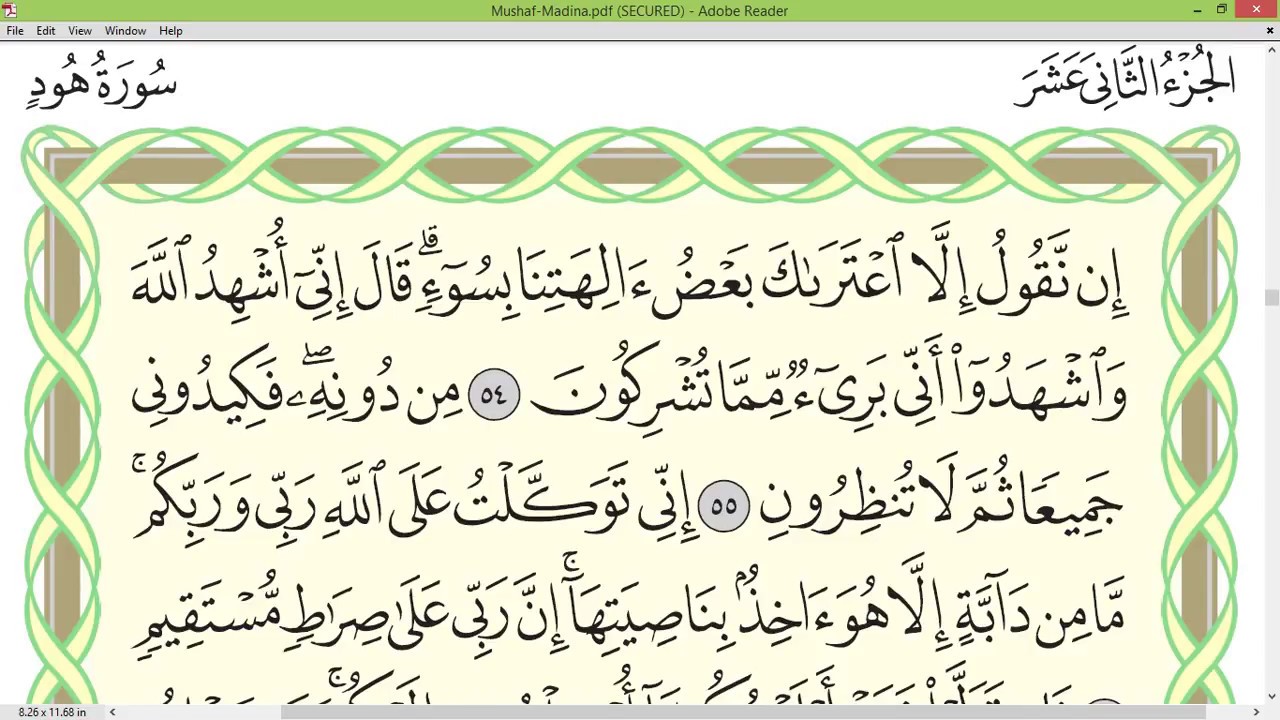 Mushaf-Madina.pdf (SECURED) - Adobe Reader
File Edit View Window Help
الجُزْءُ الثَّانِي عَشَرَ
سُورَةُ هُودٍ
إِن نَّقُولُ إِلَّا ٱعْتَرَىٰكَ بَعْضُ ءَالِهَتِنَا بِسُوٓءٍۗ قَالَ إِنِّىٓ أُشْهِدُ ٱللَّهَ
وَٱشْهَدُوٓا۟ أَنِّى بَرِىٓءٌ مِّمَّا تُشْرِكُونَ ٥٤ مِن دُونِهِۦۖ فَكِيدُونِى
جَمِيعًا ثُمَّ لَا تُنظِرُونِ ٥٥ إِنِّى تَوَكَّلْتُ عَلَى ٱللَّهِ رَبِّى وَرَبِّكُمۚ
مَّا مِن دَآبَّةٍ إِلَّا هُوَ ءَاخِذٌۢ بِنَاصِيَتِهَآۚ إِنَّ رَبِّى عَلَىٰ صِرَٰطٍ مُّسْتَقِيمٍ
8.26 x 11.68 in